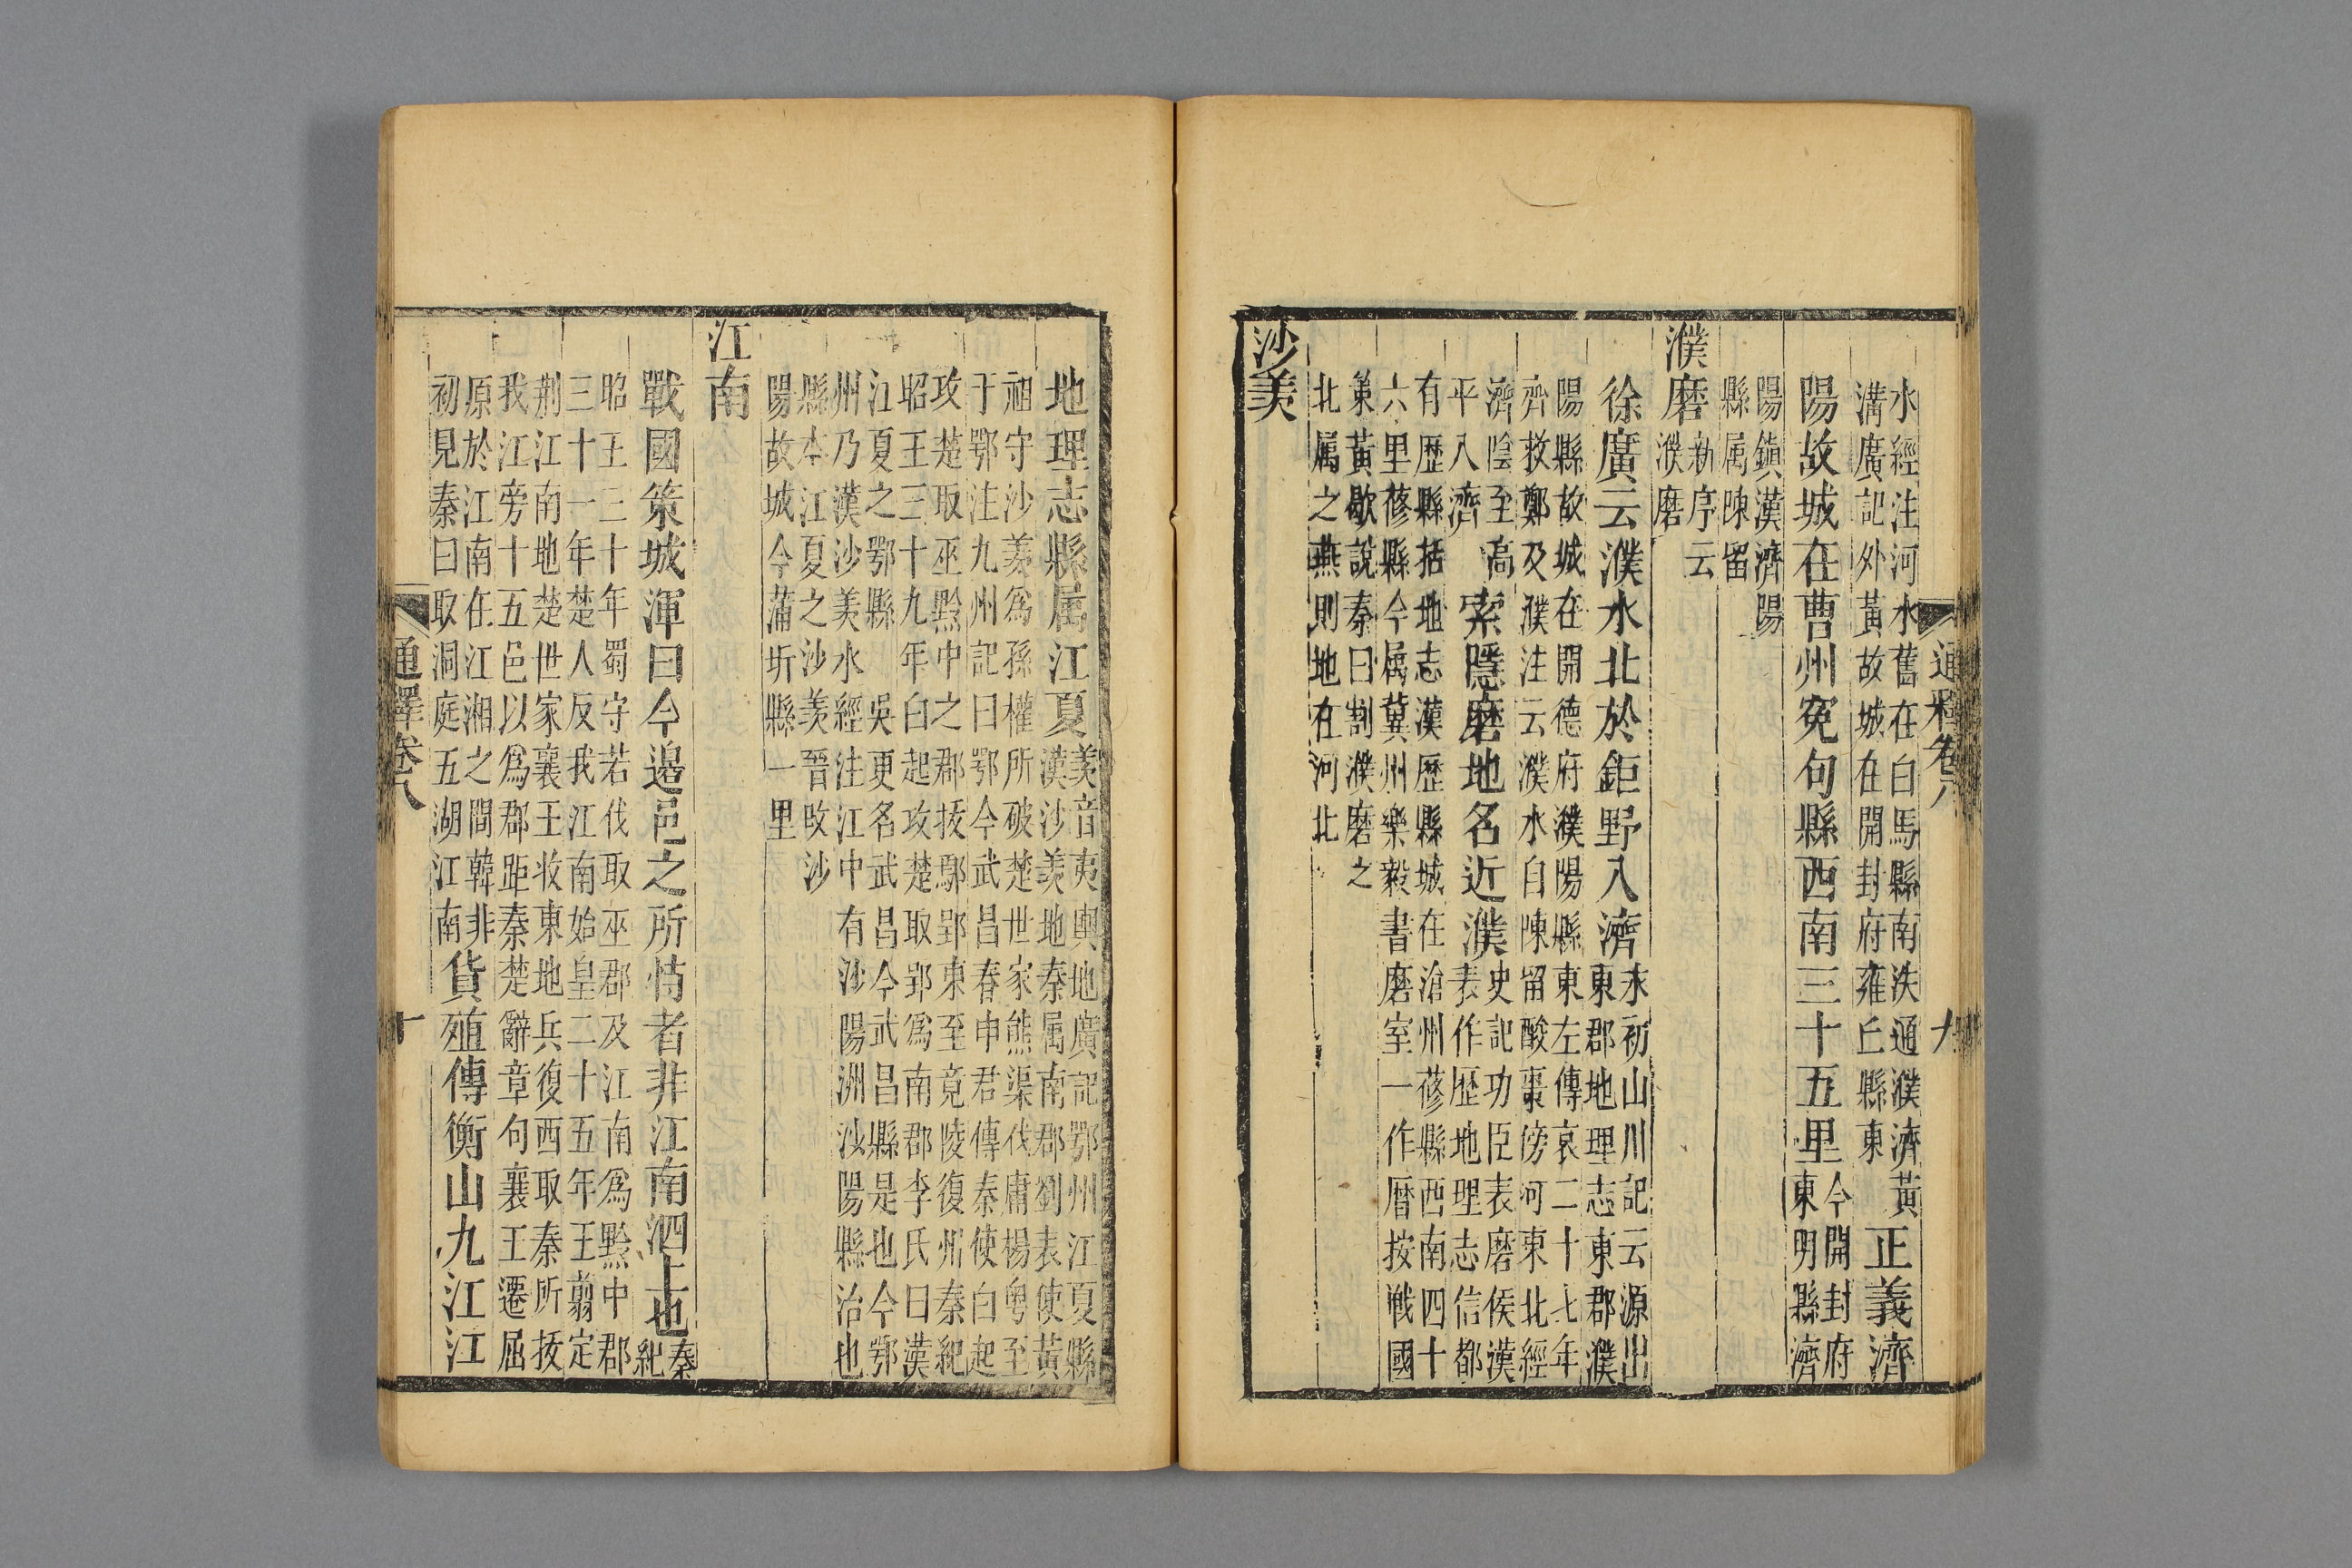 通釋卷八 九
水經注河水舊在白馬縣南泆通濮濟黃
溝廣記外黃故城在開封府雍丘縣東
正義濟
陽故城在曹州寃句縣西南三十五里
今開封府
東明縣濟
陽鎮漢濟陽
縣属陳留
濮磨
新序云
濮磨
徐廣云濮水北於鉅野入濟
水初山川記云源出
東郡地理志東郡濮
陽縣故城在開德府濮陽縣東左傳哀二十七年
齊救鄭及濮注云濮水自陳留酸棗傍河東北經
濟陰至高
平入濟
索隱磨地名近濮
史記功臣表磨侯漢
表作歷地理志信都
有歷縣括地志漢歷縣城在滄州蓚縣西南四十
六里蓚縣今属冀州樂毅書磨室一作曆按戰國
策黃歇說秦曰割濮磨之
北属之燕則地在河北
沙羡
地理志縣属江夏
羡音夷輿地廣記鄂州江夏縣
漢沙羡地秦属南郡劉表使黃
祖守沙羡為孫權所破楚世家熊渠伐庸楊粤至
于鄂注九州記曰鄂今武昌春申君傳秦使白起
攻楚取巫黔中之郡拔鄢郢東至竟陵復州秦紀
昭王三十九年白起攻楚取郢爲南郡李氏曰漢
江夏之鄂縣吳更名武昌今武昌縣是也今鄂
州乃漢沙羡水經注江中有沙陽洲沙陽縣治也
縣本江夏之沙羡晉改沙
陽故城今蒲圻縣一里
江南
戰國策城渾曰今邊邑之所恃者非江南泗上也
秦
紀
昭王三十年蜀守若伐取巫郡及江南爲黔中郡
三十一年楚人反我江南始皇二十五年王翦定
荆江南地楚世家襄王收東地兵復西取秦所拔
我江旁十五邑以爲郡距秦楚辭章句襄王遷屈
原於江南在江湘之間韓非
初見秦曰取洞庭五湖江南
貨殖傳衡山九江江
通釋卷八 十